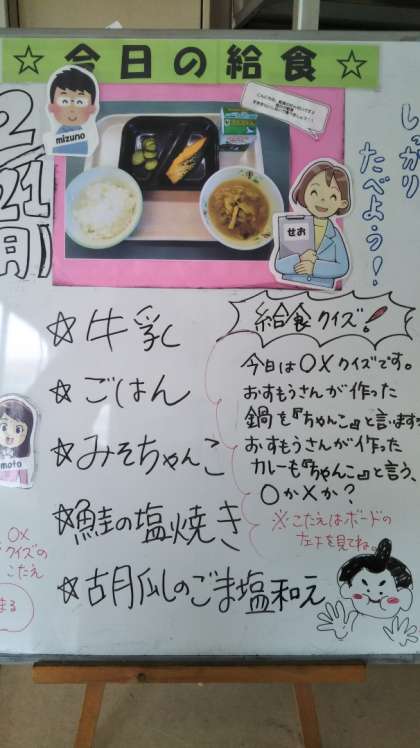 ☆ 今日の給食 ☆
2/21(月)
mizuno
せお
しっかり
たべよう!
☆牛乳
☆ごはん
☆みそちゃんこ
☆鮭の塩焼き
☆胡瓜のごま塩和え
給食クイズ!
今日は〇×クイズです。
おすもうさんが作った
鍋を『ちゃんこ』と言います。
おすもうさんが作った
カレーも『ちゃんこ』と言う、
〇か×か?
※こたえはボードの
左下を見てね。
moto
〇×
クイズの
こたえ
まる